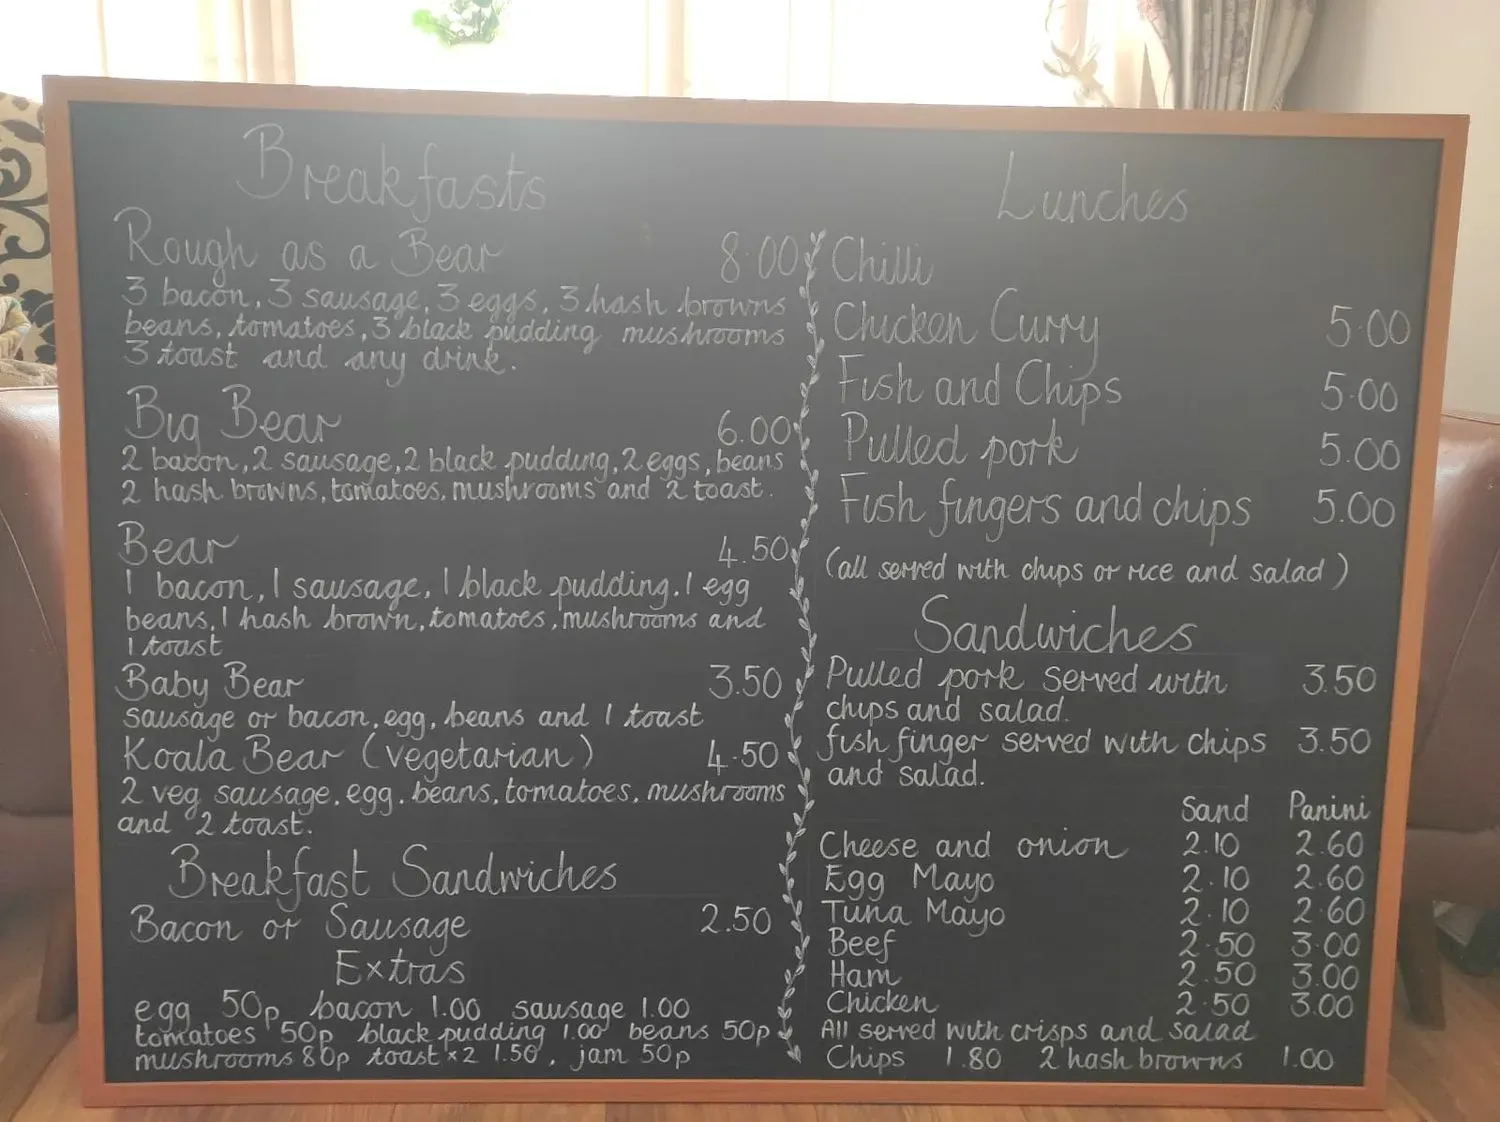 Breakfasts
Rough as a Bear 8.00
3 bacon, 3 sausage, 3 eggs, 3 hash browns
beans, tomatoes, 3 black pudding mushrooms
3 toast and any drink.
Big Bear 6.00
2 bacon, 2 sausage, 2 black pudding, 2 eggs, beans
2 hash browns, tomatoes, mushrooms and 2 toast.
Bear 4.50
1 bacon, 1 sausage, 1 black pudding. 1 egg
beans, 1 hash brown, tomatoes, mushrooms and
1 toast
Baby Bear 3.50
sausage or bacon, egg, beans and 1 toast
Koala Bear (vegetarian) 4.50
2 veg sausage, egg, beans, tomatoes, mushrooms
and 2 toast.
Breakfast Sandwiches
Bacon or Sausage 2.50
Extras
egg 50p bacon 1.00 sausage 1.00
tomatoes 50p black pudding 1.00 beans 50p
mushrooms 80p toast x2 1.50, jam 50p
Lunches
Chilli
Chicken Curry 5.00
Fish and Chips 5.00
Pulled pork 5.00
Fish fingers and chips 5.00
(all served with chips or rice and salad)
Sandwiches
Pulled pork served with 3.50
chips and salad.
fish finger served with chips 3.50
and salad.
Sand Panini
Cheese and onion 2.10 2.60
Egg Mayo 2.10 2.60
Tuna Mayo 2.10 2.60
Beef 2.50 3.00
Ham 2.50 3.00
Chicken 2.50 3.00
All served with crisps and salad
Chips 1.80 2 hash browns 1.00